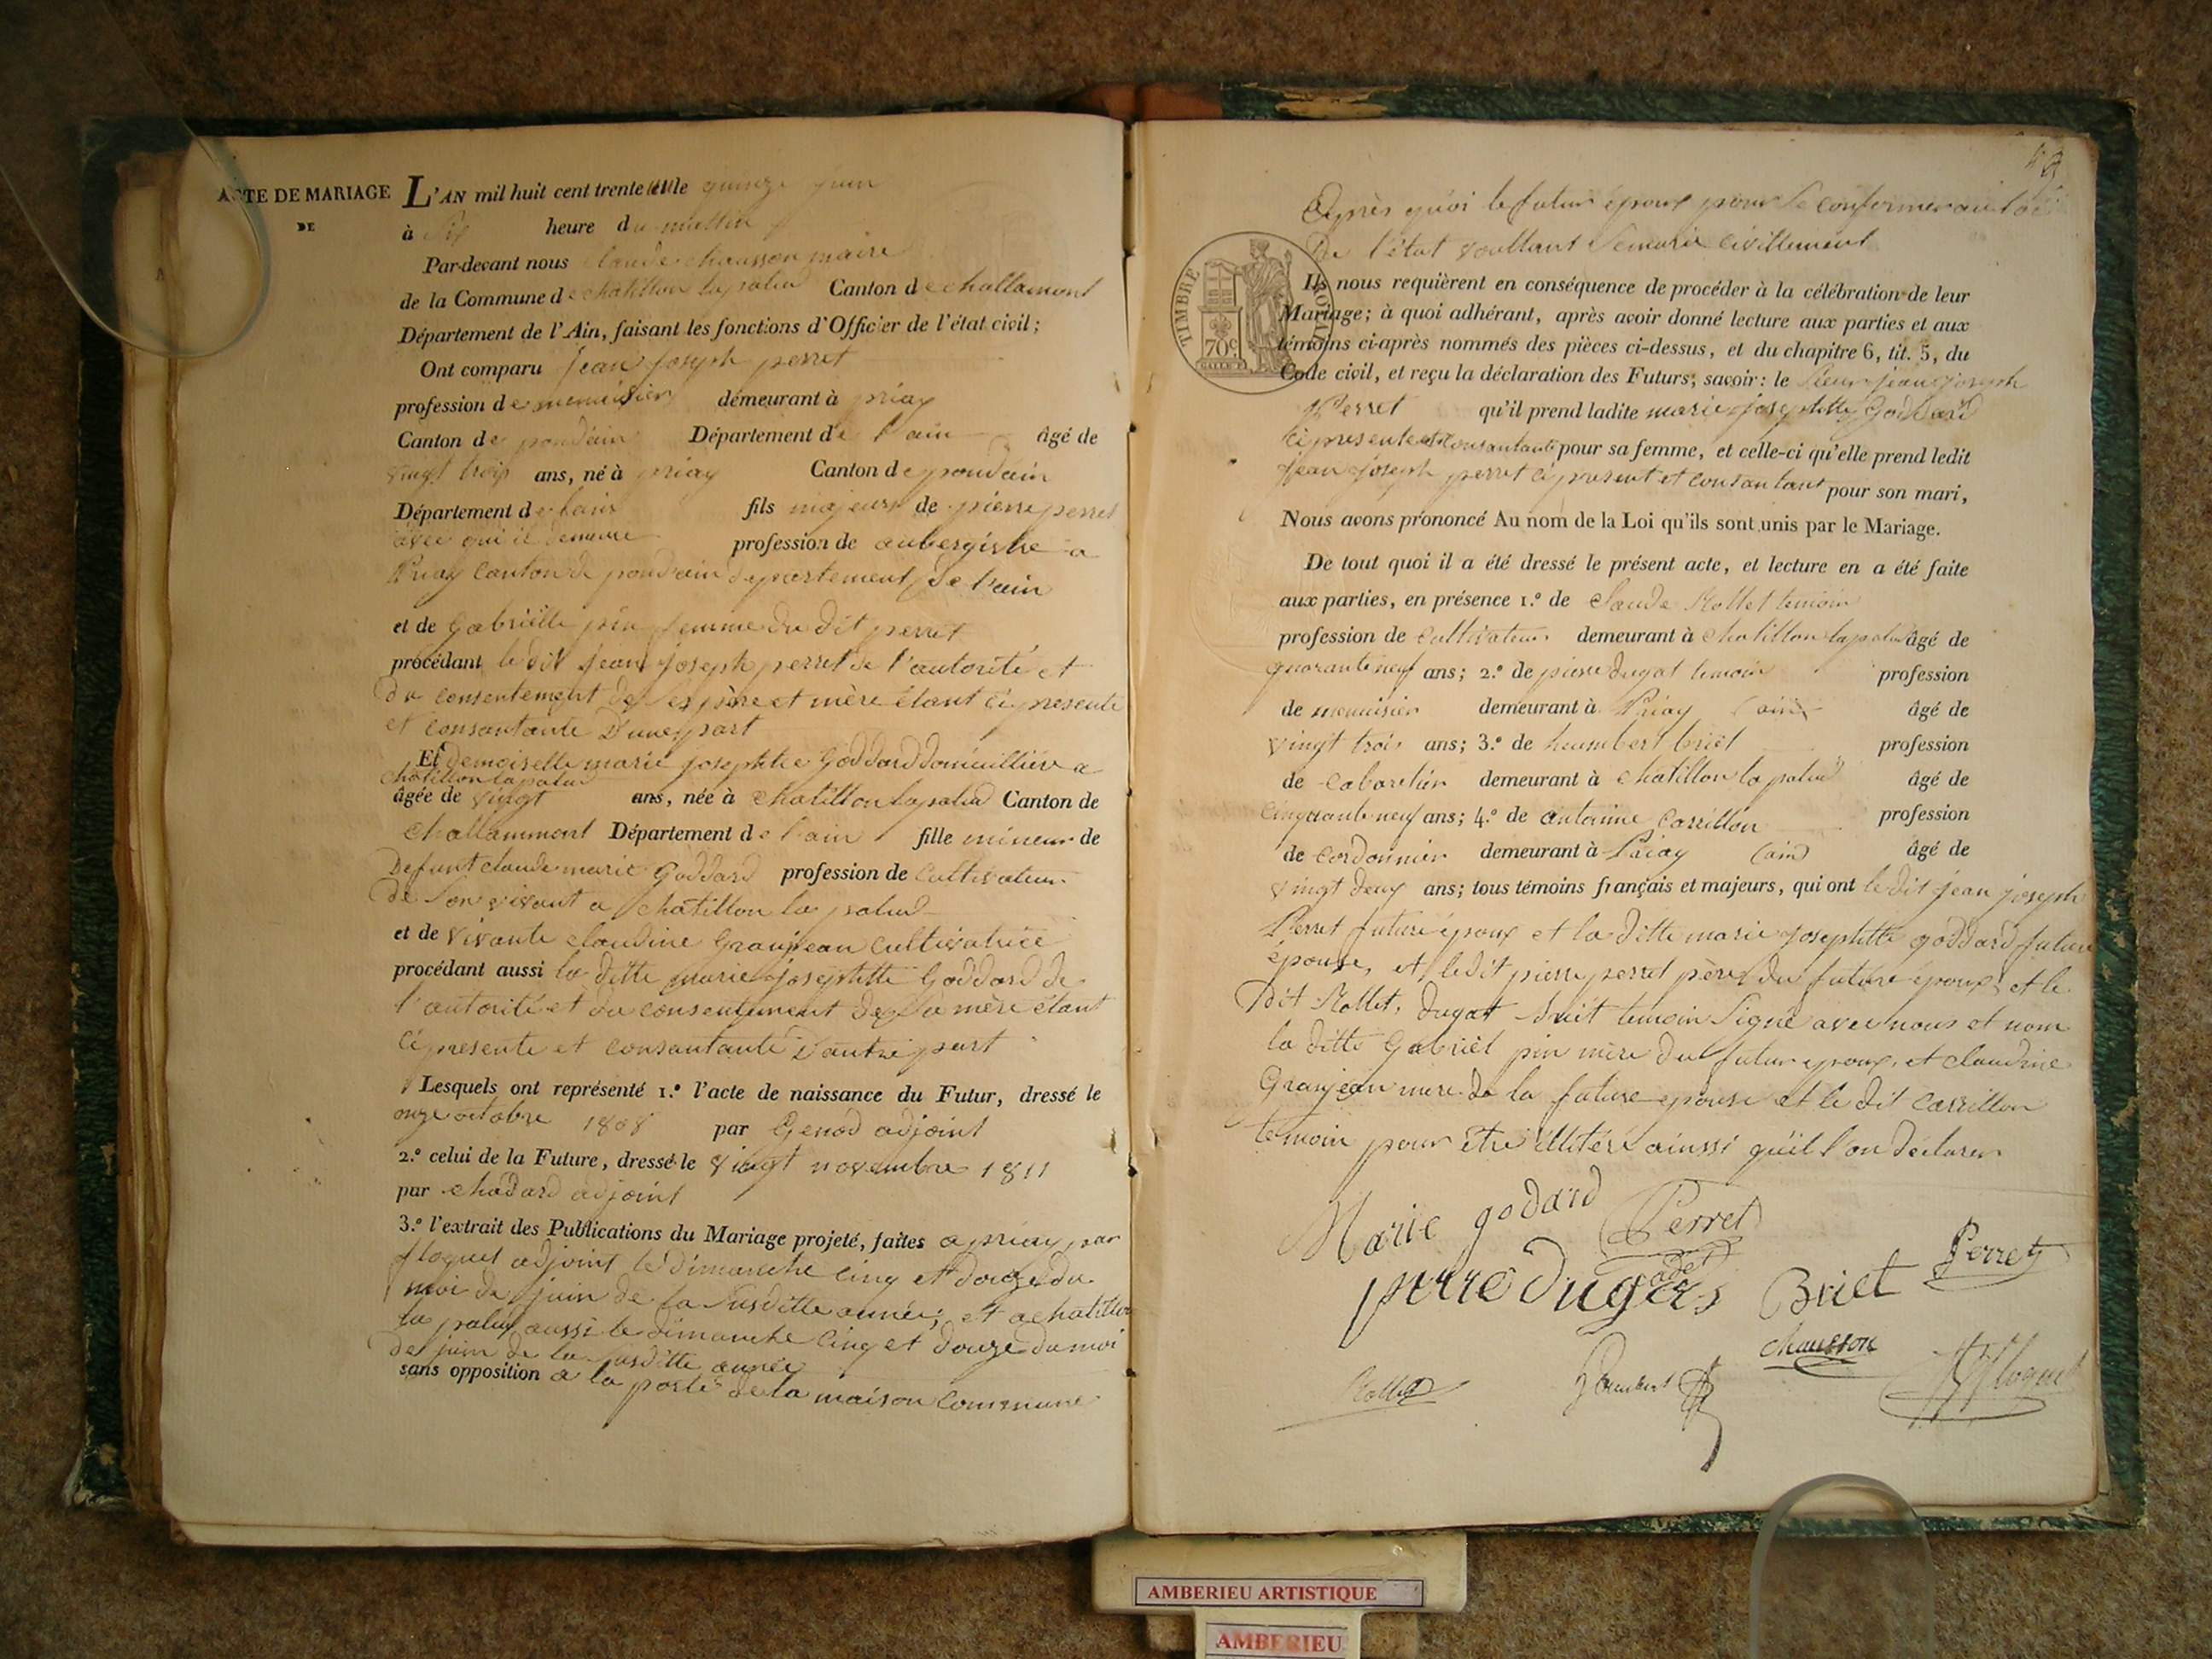 ACTE DE MARIAGE
DE
L'AN mil huit cent trente le quinze juin
à Six heure du mattin
Par-devant nous Claude chausson maire
de la Commune de chatillon la palud Canton de challamont
Département de l'Ain, faisant les fonctions d'Officier de l'état civil;
Ont comparu Jean Joseph perret
profession de menuisier démeurant à priay
Canton de pondain Département de l'ain âgé de
vingt trois ans, né à priay Canton de pondain
Département de lain fils majeur de pierre perret
avec qui il demeure profession de aubergiste a
Priay Canton de pondain departement de l'ain
et de Gabrielle pin femme du dit perret
procédant le dit Jean Joseph perret de l'autorité et
du consentement de ses père et mère étant ci présente
et consantante D'une part
Et demoiselle marie josephtte Goddard domicillière a
chatillon la palud
âgée de vingt ans, née à chatillon la palud Canton de
Challammont Département de l'ain fille mineur de
Defunt claude marie Goddard profession de Cultivateur
de Son vivant a chatillon la palud
et de vivante claudine Granjean Cultivatrice
procédant aussi la ditte marie josephtte Goddard de
l'autorité et du consentement de Sa mère étant
Ci presente et consantante D'autre part
Lesquels ont représenté 1.º l'acte de naissance du Futur, dressé le
onze octobre 1808 par Genod adjoint
2.º celui de la Future, dressé le vingt novembre 1811
par chadard adjoint
3.º l'extrait des Publications du Mariage projeté, faites a priay par
floquet adjoint le dimanche cinq et douze du
moi de juin de la Susditte année; et a chatillon
la palud aussi le dimanche cinq et douze du moi
de juin de la Susditte année
sans opposition a la porte de la maison Commune
49
Après quoi le futur époux pour Se conformer au loi
De l'état voullant Semarié Civillement
TIMBRE ROYAL
70c
Ils nous requièrent en conséquence de procéder à la célébration de leur
Mariage; à quoi adhérant, après avoir donné lecture aux parties et aux
témoins ci-après nommés des pièces ci-dessus, et du chapitre 6, tit. 5, du
Code civil, et reçu la déclaration des Futurs; savoir: le Sieur jean joseph
Perret qu'il prend ladite marie josephtte Goddard
Ci presente et consantante pour sa femme, et celle-ci qu'elle prend ledit
jean joseph perret ci présent et consantant pour son mari,
Nous avons prononcé Au nom de la Loi qu'ils sont unis par le Mariage.
De tout quoi il a été dressé le présent acte, et lecture en a été faite
aux parties, en présence 1.º de Claude Rollet temoin
profession de Cultivateur demeurant à Chatillon la palud âgé de
quarante neuf ans; 2.º de pierre dugat temoin profession
de menuisier demeurant à Priay (ain) âgé de
vingt trois ans; 3.º de humbert briet profession
de Cabaretier demeurant à Chatillon la palud âgé de
Cinquante neuf ans; 4.º de antoine Carrillon profession
de Cordonnier demeurant à Priay (ain) âgé de
vingt deux ans; tous témoins français et majeurs, qui ont le dit Jean joseph
Perret future époux et la ditte marie josephtte goddard future
épouse, et ledit pierre perret père du future époux et le
Dit Rollet, dugat briet temoin Signé avec nous et nom
la ditte Gabriel pin mère du futur epoux, et claudine
Granjean mere de la future epouse et le dit Carrillon
temoin pour être illitéré ainssi qu'il l'on déclarer
Marie godard Perret
cadet
pierre Dugas Briet Perret
chausson
Rollet Floquet
AMBERIEU ARTISTIQUE
AMBERIEU